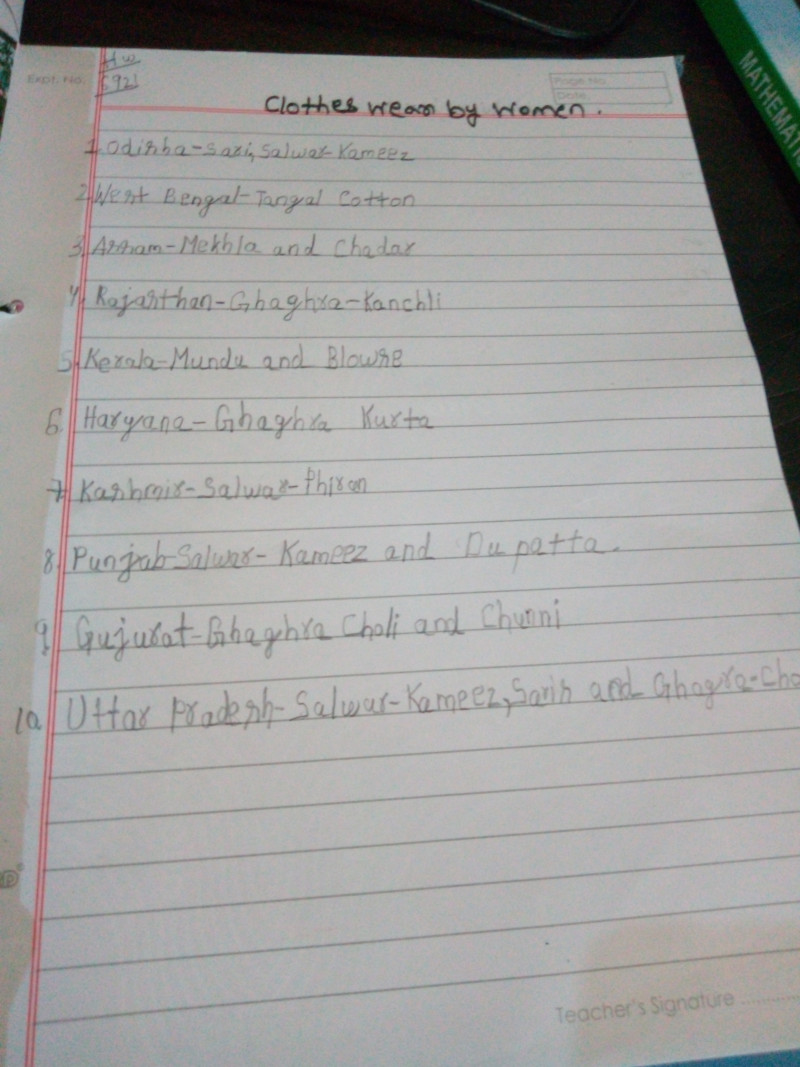 MATHEMATI
H.W
Expt. No.
Page No.
Date
Clothes wear by women.
1. Odisha-Sari, Salwar-Kameez
2. West Bengal-Tangal Cotton
3. Assam-Mekhla and Chadar
4. Rajasthan-Ghaghra-Kanchli
5. Kerala-Mundu and Blowse
6. Haryana-Ghaghra Kurta
7. Kashmir-Salwar-Phiron
8. Punjab-Salwar-Kameez and Dupatta.
9. Gujurat-Ghaghra Choli and Chunni
10. Uttar Pradesh-Salwar-Kameez, Saris and Ghagra-Cho
Teacher's Signature